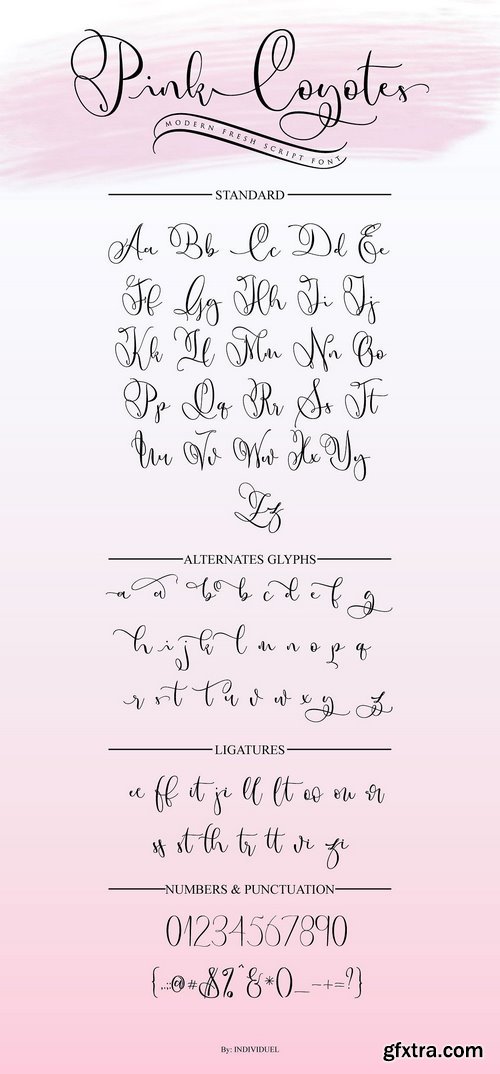 Pink Coyotes
MODERN FRESH SCRIPT FONT
STANDARD
Aa Bb Cc Dd Ee
Ff Gg Hh Ii Jj
Kk Ll Mm Nn Oo
Pp Qq Rr Ss Tt
Uu Vv Ww Xx Yy
Zz
ALTERNATES GLYPHS
a a b b c d e f g
h i j k l m n o p q
r s t t u v w x y z
LIGATURES
ee ff it ji ll lt oo ou rr
ss st th tr tt vi zi
NUMBERS & PUNCTUATION
01234567890
{.,:;@#$%^&*()_-+=?}
By: INDIVIDUEL
gfxtra.com